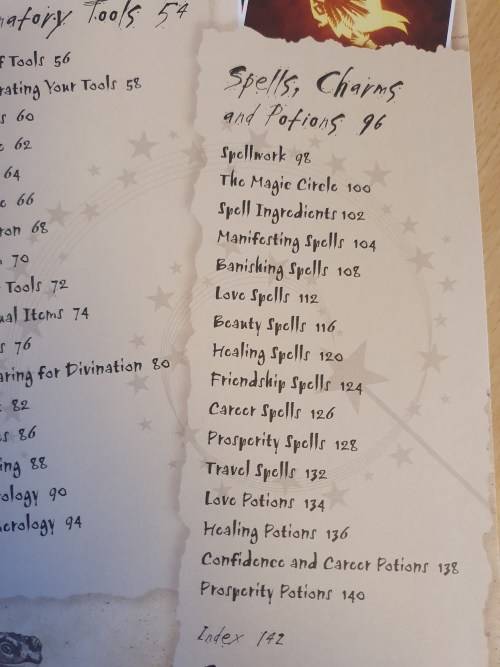 Tools 54
Tools 56
Your Tools 58
60
62
64
66
68
70
Tools 72
Items 74
76
for Divination 80
82
86
88
90
94
Spells, Charms
and Potions 96
Spellwork 98
The Magic Circle 100
Spell Ingredients 102
Manifesting Spells 104
Banishing Spells 108
Love Spells 112
Beauty Spells 116
Healing Spells 120
Friendship Spells 124
Career Spells 126
Prosperity Spells 128
Travel Spells 132
Love Potions 134
Healing Potions 136
Confidence and Career Potions 138
Prosperity Potions 140
Index 142